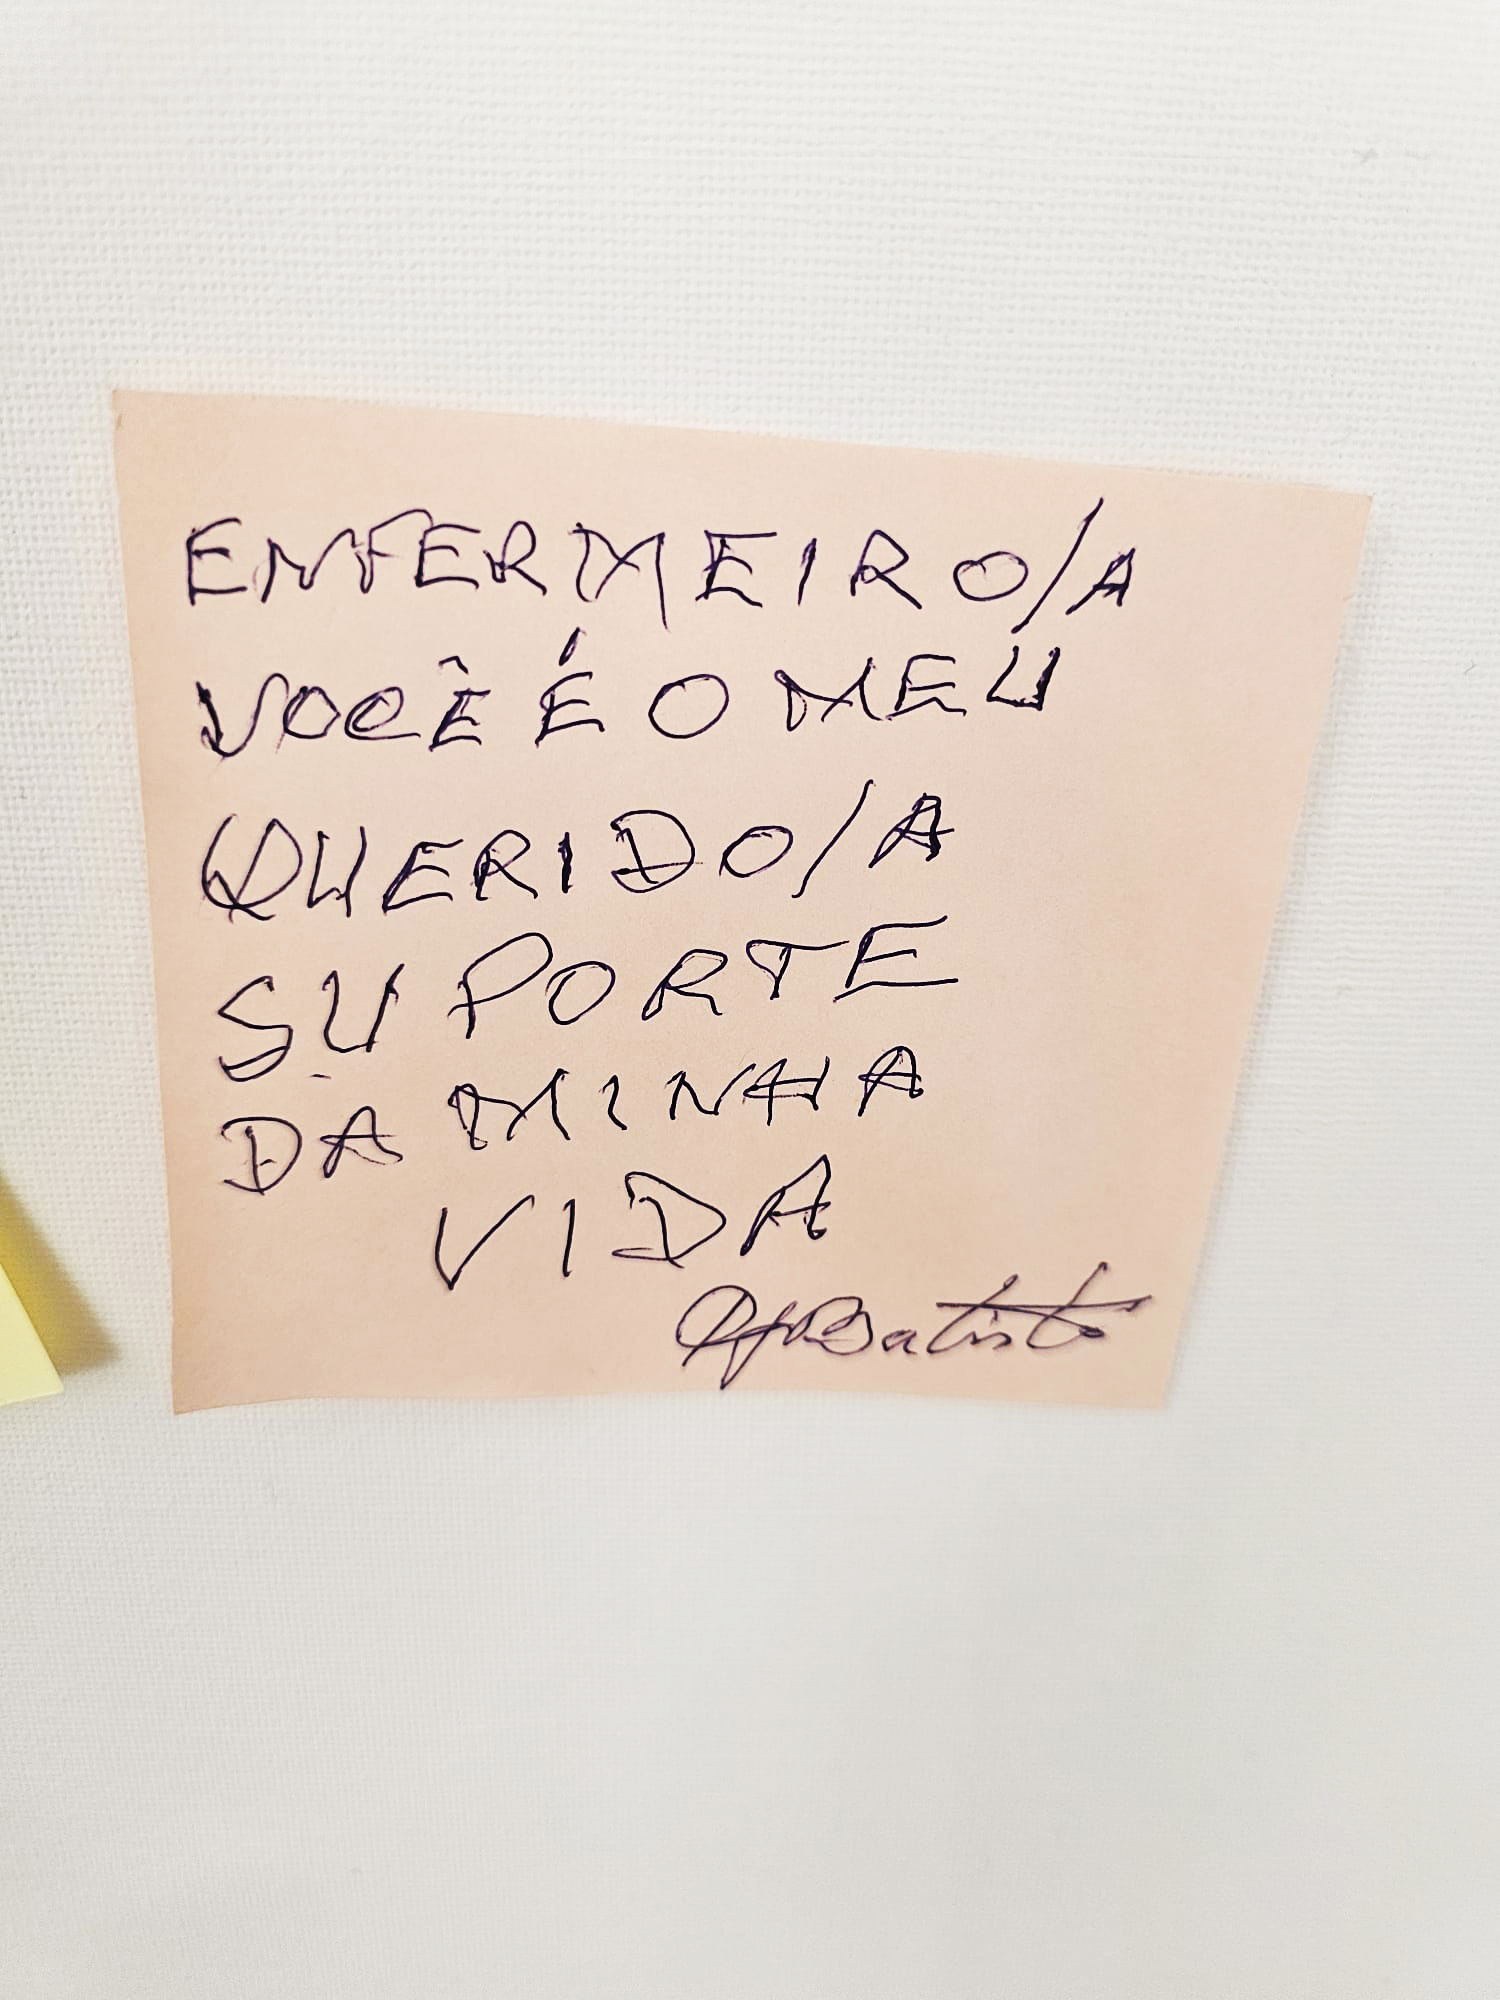 ENFERMEIRO/A
VOCÊ É O MEU
QUERIDO/A
SUPORTE
DA MINHA
VIDA
Batista